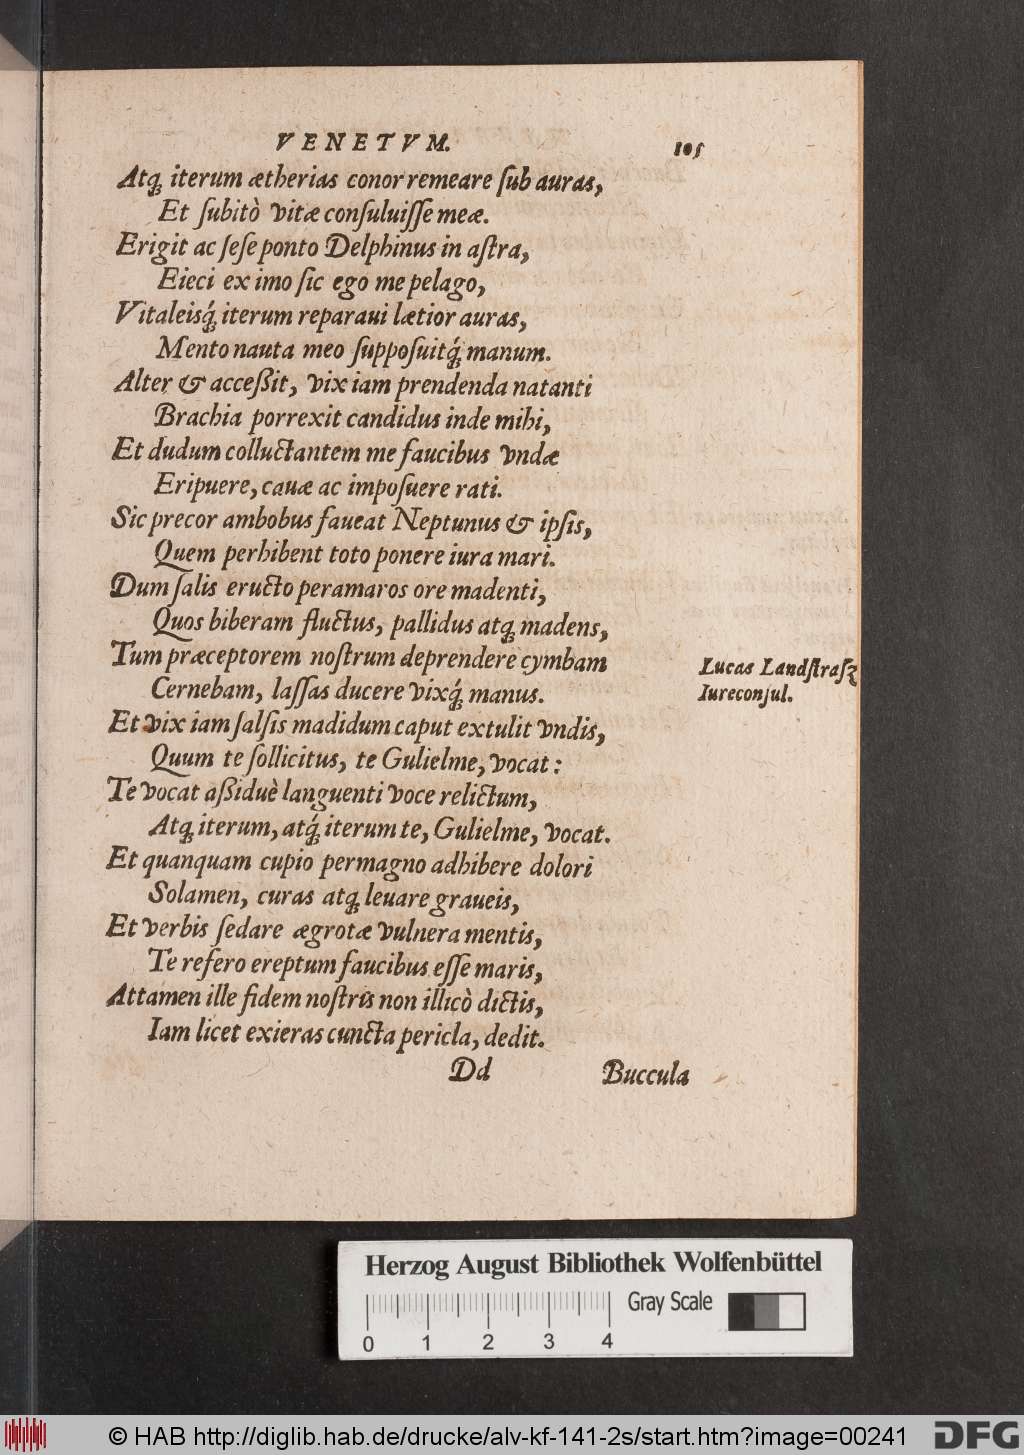 VENETVM. 105
Atq́ue iterum ætherias conor remeare ſub auras,
Et ſubitò vitæ conſuluiſſe meæ.
Erigit ac ſeſe ponto Delphinus in aſtra,
Eieci ex imo ſic ego me pelago,
Vitaleisq́; iterum reparaui lætior auras,
Mento nauta meo ſuppoſuitq́; manum.
Alter & acceßit, vix iam prendenda natanti
Brachia porrexit candidus inde mihi,
Et dudum colluctantem me faucibus vndæ
Eripuere, cauæ ac impoſuere rati.
Sic precor ambobus faueat Neptunus & ipſis,
Quem perhibent toto ponere iura mari.
Dum ſalis eructo peramaros ore madenti,
Quos biberam fluctus, pallidus atq; madens,
Tum præceptorem noſtrum deprendere cymbam
Lucas Landſtraſz
Cernebam, laſſas ducere vixq́; manus.
Iureconſul.
Et vix iam ſalſis madidum caput extulit vndis,
Quum te ſollicitus, te Gulielme, vocat:
Te vocat aßiduè languenti voce relictum,
Atq; iterum, atq́; iterum te, Gulielme, vocat.
Et quanquam cupio permagno adhibere dolori
Solamen, curas atq; leuare graueis,
Et verbis ſedare ægrotæ vulnera mentis,
Te refero ereptum faucibus eſſe maris,
Attamen ille fidem noſtris non illicò dictis,
Iam licet exieras cuncta pericla, dedit.
Dd Buccula
Herzog August Bibliothek Wolfenbüttel
Gray Scale
0 1 2 3 4
© HAB http://diglib.hab.de/drucke/alv-kf-141-2s/start.htm?image=00241
DFG